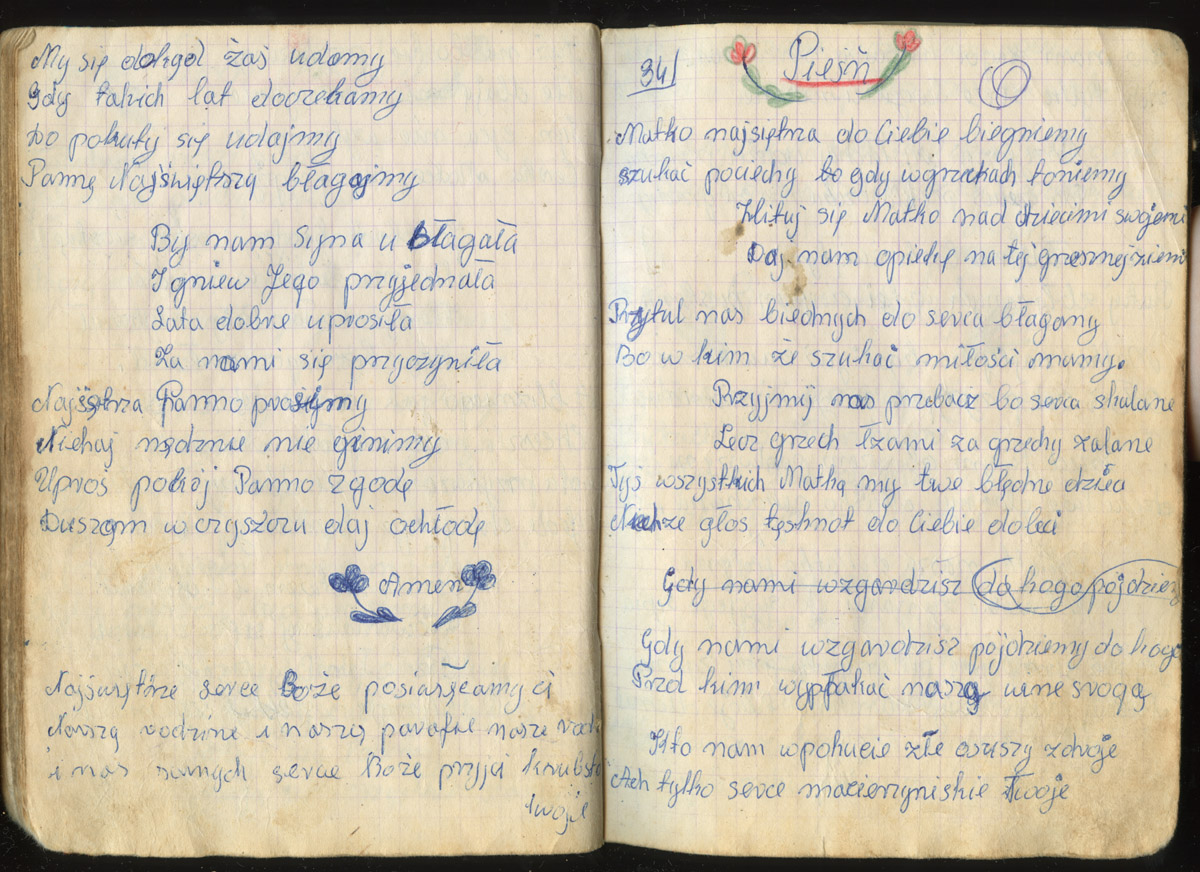 My się dokąd żaś udamy
Gdy takich lat doczekamy
Do pokuty się udajmy
Pannę Najświętrzą błagajmy
By nam Syna u błagała
I gniew Jego przyjednała
Lata dobre uprosiła
Za nami się przyczyniła
Najśętrza Panno prosimy
Niehaj nędznie nie ginimy
Uproś pokój Panno zgodę
Duszom w czyszczu daj ochłodę
Amen
Najświętrze serce Boże poświęcamy ci
Naszą rodzine i naszą parafie nasze
i nas samych serce Boże przyjci
twoje
34 Pieśń
Matko najsiętrza do Ciebie biegniemy
szukać pociechy bo gdy wgrzekach toniemy
Zlituj się Matko nad dziecimi swojemi
Daj nam opiekę na tej grzesznej ziemi
Przytul nas biednych do serca błagamy
Bo w kim że szukać miłości mamy.
Przyjmij nas przebacz bo serca skalane
Lecz grzech łzami za grzechy zalane
Tyś wszystkich Matką my twe błędne dzieća
Niechże głos tęsknot do Ciebie doleci
Gdy nami wzgardzisz do kogo pójdziem
Gdy nami wzgardzisz pójdziemy do kogo
Przed kim wypłakać naszą wine srogą
Kto nam wpokucie złe duszy zdroje
Ach tylko serce macierzyniskie Twoje